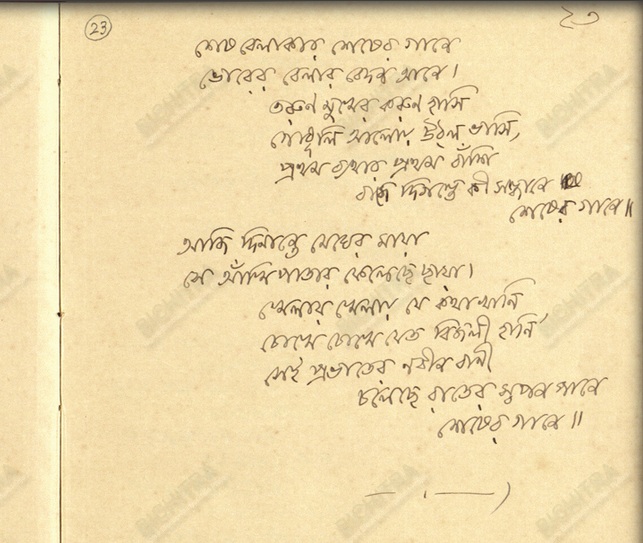 23
২৩
শেষ বেলাকার শেষের গানে
ভোরের বেলার বেদন আনে।
তরুণ মুখের করুণ হাসি
গোধূলি আলোয় উঠল ভাসি,
প্রথম ব্যথার প্রথম বাঁশি
বাজে দিগন্তে কী সন্ধানে
শেষের গানে॥
আজি দিনান্তে মেঘের মায়া
সে আঁখিপাতার ফেলেছে ছায়া।
খেলায় খেলায় যে কথাখানি
চোখে চোখে যেত বিজলী হানি
সেই প্রভাতের নবীন বাণী
চলেছে রাতের স্বপন পানে
শেষের গানে॥
BICHITRA